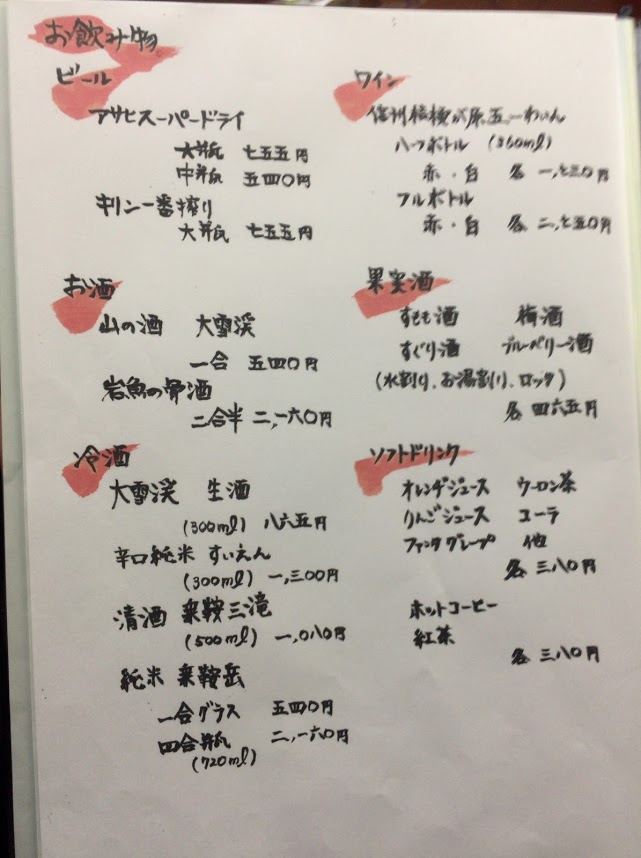 お飲み物
ビール
アサヒスーパードライ
大瓶 七五五円
中瓶 五四〇円
キリン一番搾り
大瓶 七五五円
お酒
山の酒 大雪渓
一合 五四〇円
岩魚の骨酒
二合半 二、一六〇円
冷酒
大雪渓 生酒
(300ml) 八六五円
辛口純米 すいえん
(300ml) 一、三00円
清酒 乗鞍三滝
(500ml) 一、0八0円
純米 乗鞍岳
一合グラス 五四0円
四合瓶 二、一六0円
(720ml)
ワイン
信州桔梗が原、五一わいん
ハーフボトル (360ml)
赤・白 各 一、七三0円
フルボトル
赤・白 各 二、七五0円
果実酒
すもも酒 梅酒
すぐり酒 ブルーベリー酒
(水割り、お湯割り、ロック)
各 四六五円
ソフトドリンク
オレンヂジュース ウーロン茶
りんごジュース コーラ
ファンタグレープ 他
各 三八0円
ホットコーヒー
紅茶
各 三八0円